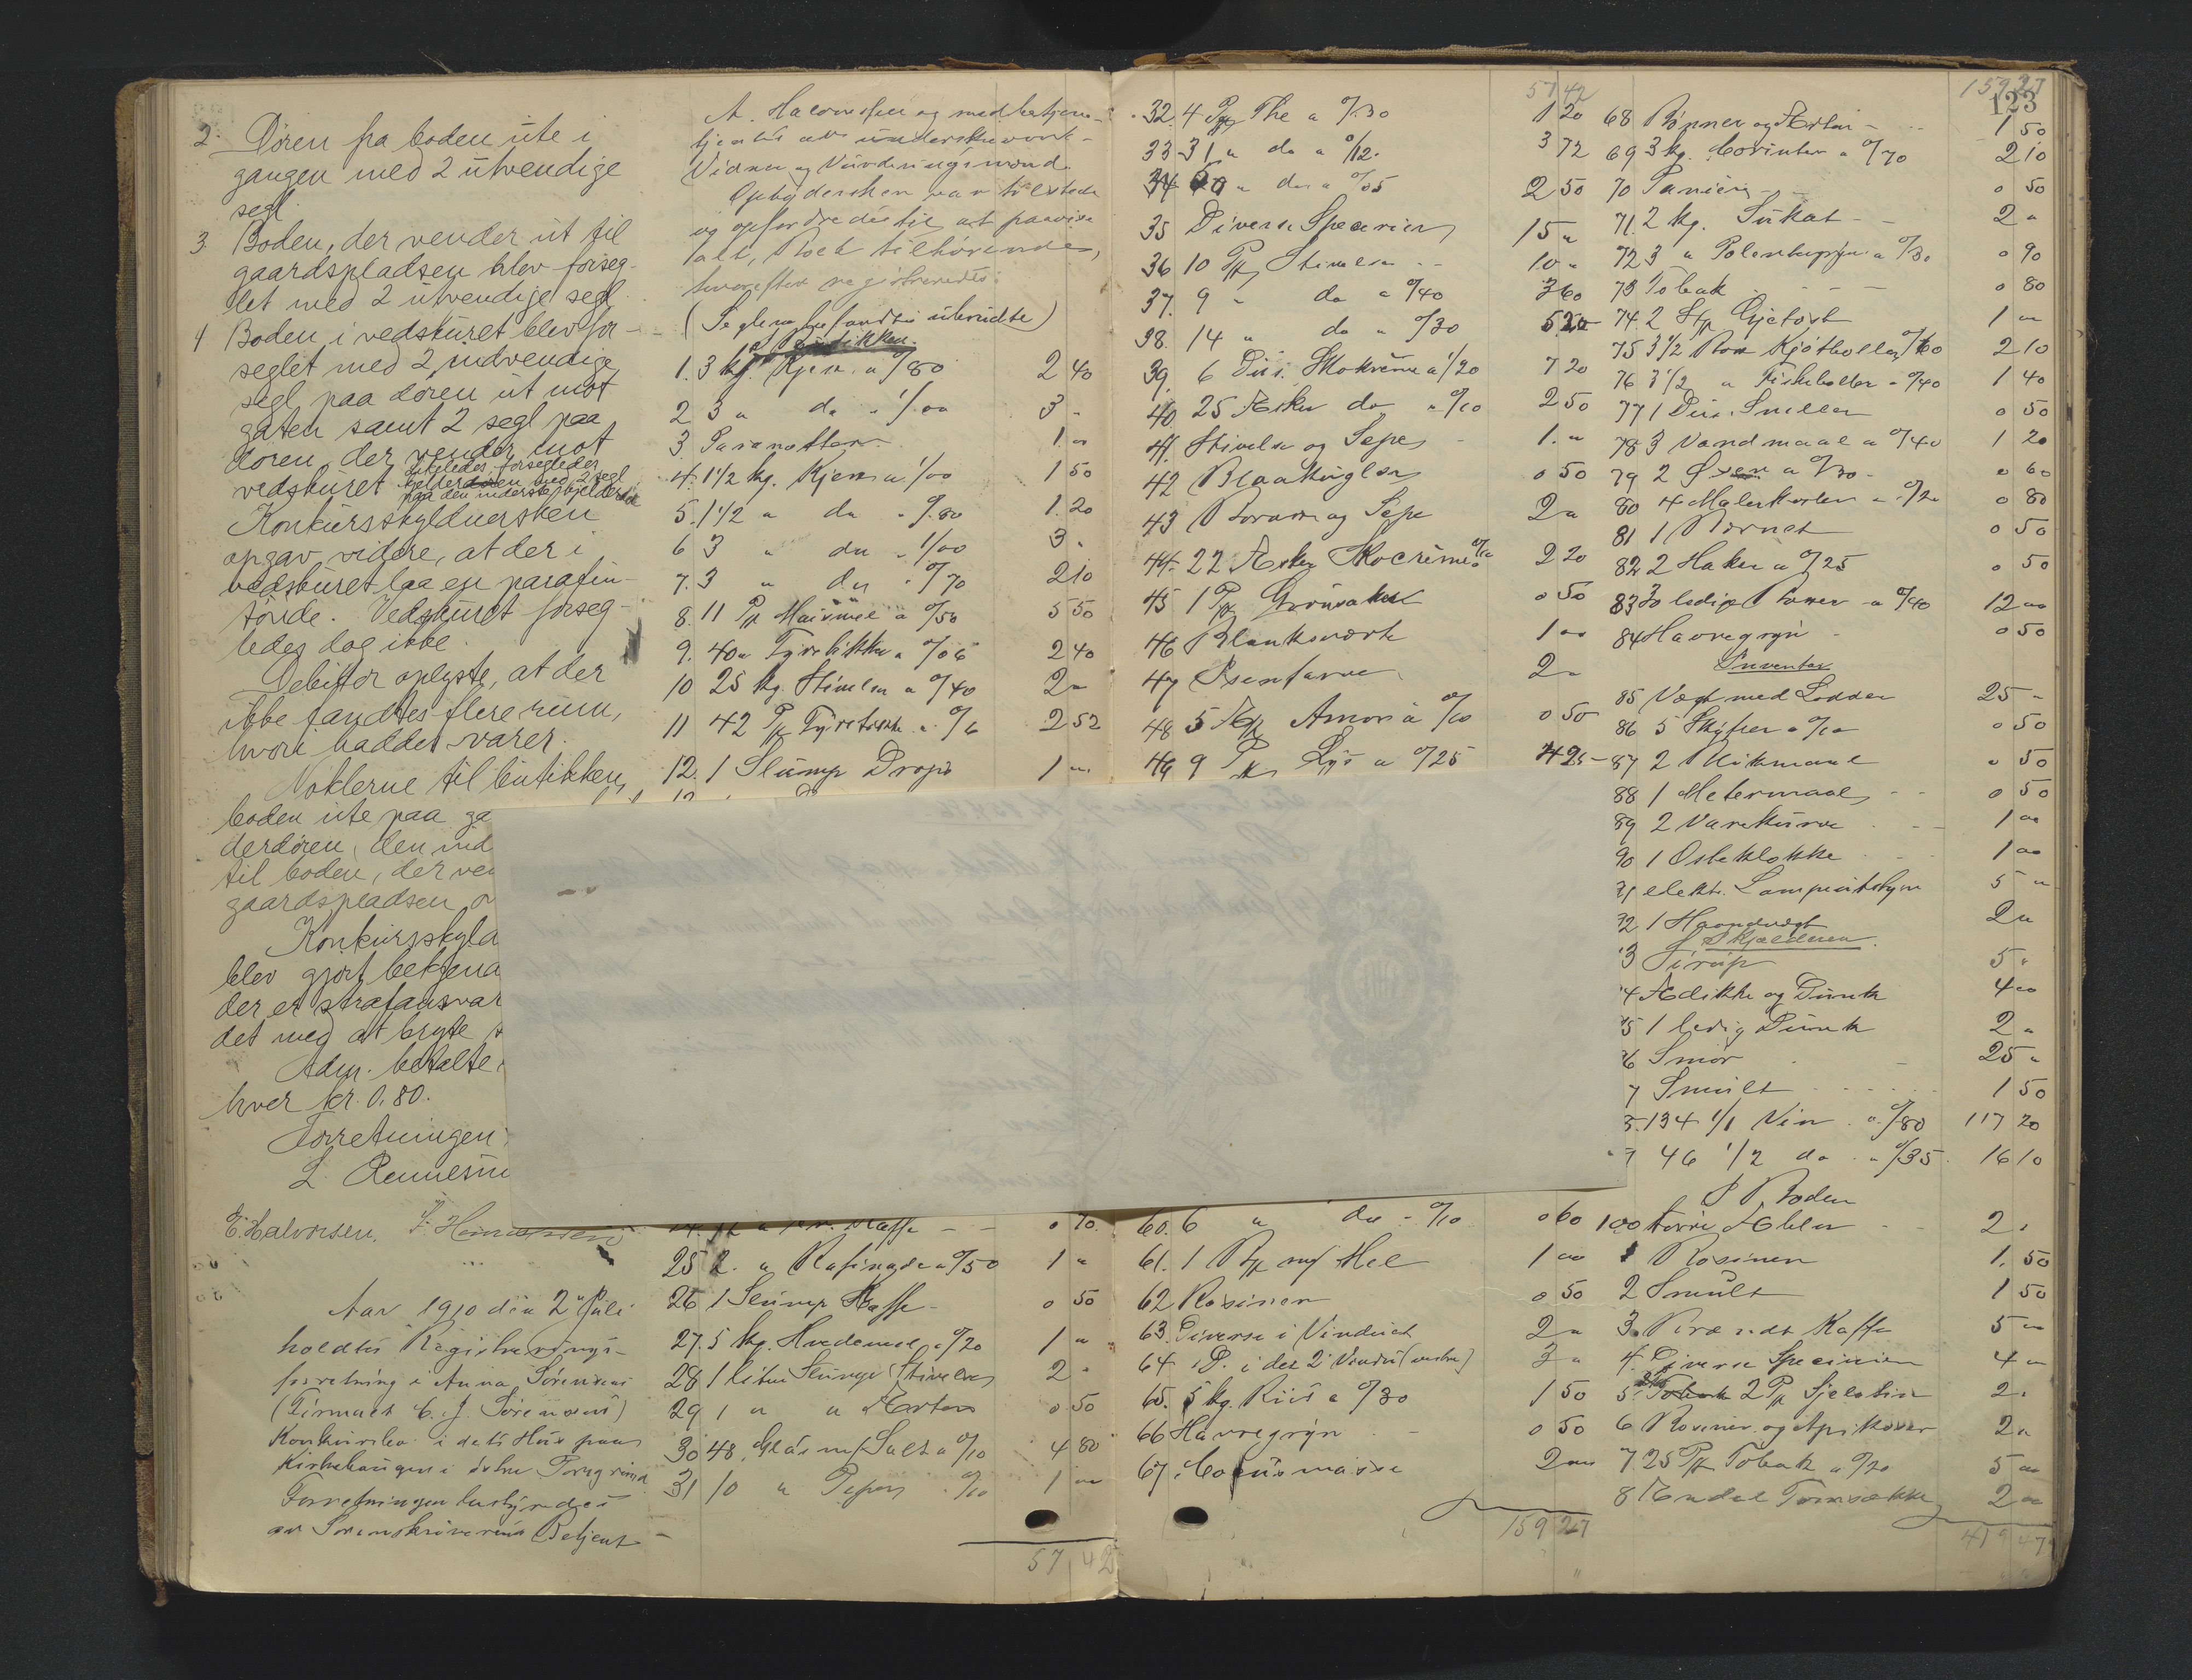 2. Døren fra boden ute i
gangen med 2 utvendige
segl.
3. Boden, der vender ut til
gaardspladsen blev forseg-
let med 2 utvendige segl
4 Boden i vedskuret blev for-
seglet med 2 indvendige
segl paa døren ut mot
gaten samt 2 segl paa
døren, der vender mot
vedskuret. Likeledes forsegledes
kjelderdøren med 2 segl
paa den inderste kjelderdør
Konkursskyldnersken
opgav videre, at der i
vedskuret laa en parafin-
tønde. Vedskuret forseg-
ledes dog ikke.
Debitor oplyste, at der
ikke fandtes flere rum,
hvori haddes varer.
Nøklerne til butikken,
boden ute paa ga
derdøren, den ind
til boden, der ven
gaardspladsen o
Konkursskyld
blev gjort bekjend
der er strafansvar
det med at bryte
Adm. betalte
hver kr. 0.80.
Forretningen
L. Rennesun
E. Halvorsen.
Aar 1910 den 2 Juli
holdtes Registrerings-
forretning i Anna Sørensens
(Firmaet C. J. Sørensens)
Konkursbo i dets Hus paa
Kirkehaugen i østre Porsgrund
Forretningen bestyredes
av Sorenskriverens Betjent
A. Halvorsen og medbetjen-
tjentes av underskrevne
Vidner og Vurderingsmænd.
Opbydersken var tilstede
og opfordredes til at paavise
alt, Boet tilhørende,
hvorefter registreredes:
(Seglene befandtes ubrudte)
I Butikken.
1. 3 kg. Kjex a 0/80 2 40
2 3 " do " 1/00 3 "
3 Paranøtter 1 00
4. 1 1/2 kg. Kjex a 1/00 1 50
5. 1 1/2 " do " 0/80 1. 20
6 3 " do " 1/00 3 "
7. 3 " do " 0/70 2 10
8. 11 Pk Maismel a 0/50 5 50
9. 40 " Fyrstikker a 0/06 2 40
10 25 kg. Stivelse a 0/40 2 "
11 42 Pk Fyrstikke a 0/6 2 52
12. 1 Slump Drops 1 "
0 70.
25 2. " Rafinade a 0/50 1 "
26 1 Slump Kaffe 0 50
27. 5 kg. Hvedemel a 0/20 1 "
28 1 liten Slump Stivelse 2 "
29 1 " " Erter 0 50
30 48 Glas m/ Salt a 0/10 4 80
31 10 " Peper " 0/10 1 00
57 42
57 42
32. 4 Pk The a 0/30 1 20
33 31 " do a 0/12. 3 72
34 " do a 0/05 2 50
35 Diverse Specerier 15 "
36 10 Pk Stivelse 10 "
37. 9 " do a 0/40 3 60
38. 14 " do " 0/30
39. 6 Dus. Skokreme a 1/20 7 20
40 25 Esker do a 0/10 2 50
41. Stivelse og Sepe 1. "
42 Blaakugler 0 50
43 Borax og Sepe 2 "
44. 22 Esker Skocreme 0/10 2 20
45 1 Pk Grønsaker 0 50
46 Blanksværte 1 00
47 Isenfarve 2 "
48 5 Amor a 0/10 0 50
49 9 Pk Lys a 0/25
60. 6 " do " 0/10 0 60
61. 1 Bk m/ Mel 1 00
62 Rosiner 0 50
63. Diverse i Vinduet 2 "
64 D. i det 2' Vindu (venstre) 3 "
65. 5 kg. Riis a 0/30 1 50
66 Havregryn 0 50
67. Cocusmasse 2 00
159 27
159 27
123
68 Bønner og Erter 1 50
69 3 kg. Corinter a 0/70 2 10
70 0 50
71. 2 kg. Sukat 2 "
72 3 " a 0/30 0 90
73 Tobak 0 80
74. 2 Gjetost 1 "
75 3 1/2 Box Kjøtboller a 0/60 2 10
76 3 1/2 " Fiskeboller a 0/40 1 40
77 1 Dus. Sneller 0 50
78 3 Vandmaal a 0/40 1 20
79 2 Øxer a 0/30 0 60
80 4 Malerkoster a 0/20 0 80
81 1 0 50
82 2 Haker a 0/25 0 50
83 30 ledige Boxer a 0/40 12 00
84 Havregryn 0 50
Inventar
85 Vægt med Lodder 25 "
86 5 Skuffer a 0/10 0 50
87 2 0 50
88 1 Metermaal 0 50
89 2 Varekurve 1 00
90 1 Osteklokke 1 00
91 elektr. Lampeutstyr 5 "
92 1 Haandvægt 2 "
I Kjælderen.
3 Sirup 5 "
4 Edikke og Dunk 4 00
5 1 ledig Dunk 2 "
6 Smør 25 "
7 Smult 1 50
8. 134 1/1 Vin " 0/80 117 20
46 1/2 do " 0/35 16 10
I Boden
100 tørre Æbler 2 "
1 Rosiner 1. 50
2 Smult 1 50
3. Brændt Kaffe 5 "
4. Diverse Specerier 4 "
5. 2 Pk Gjelatin 2 "
6 Rosiner og Aprikoser 2 "
7. 25 Pk Tobak a 0/20 5 00
8 Endel Tomsækker 2 00
419 47